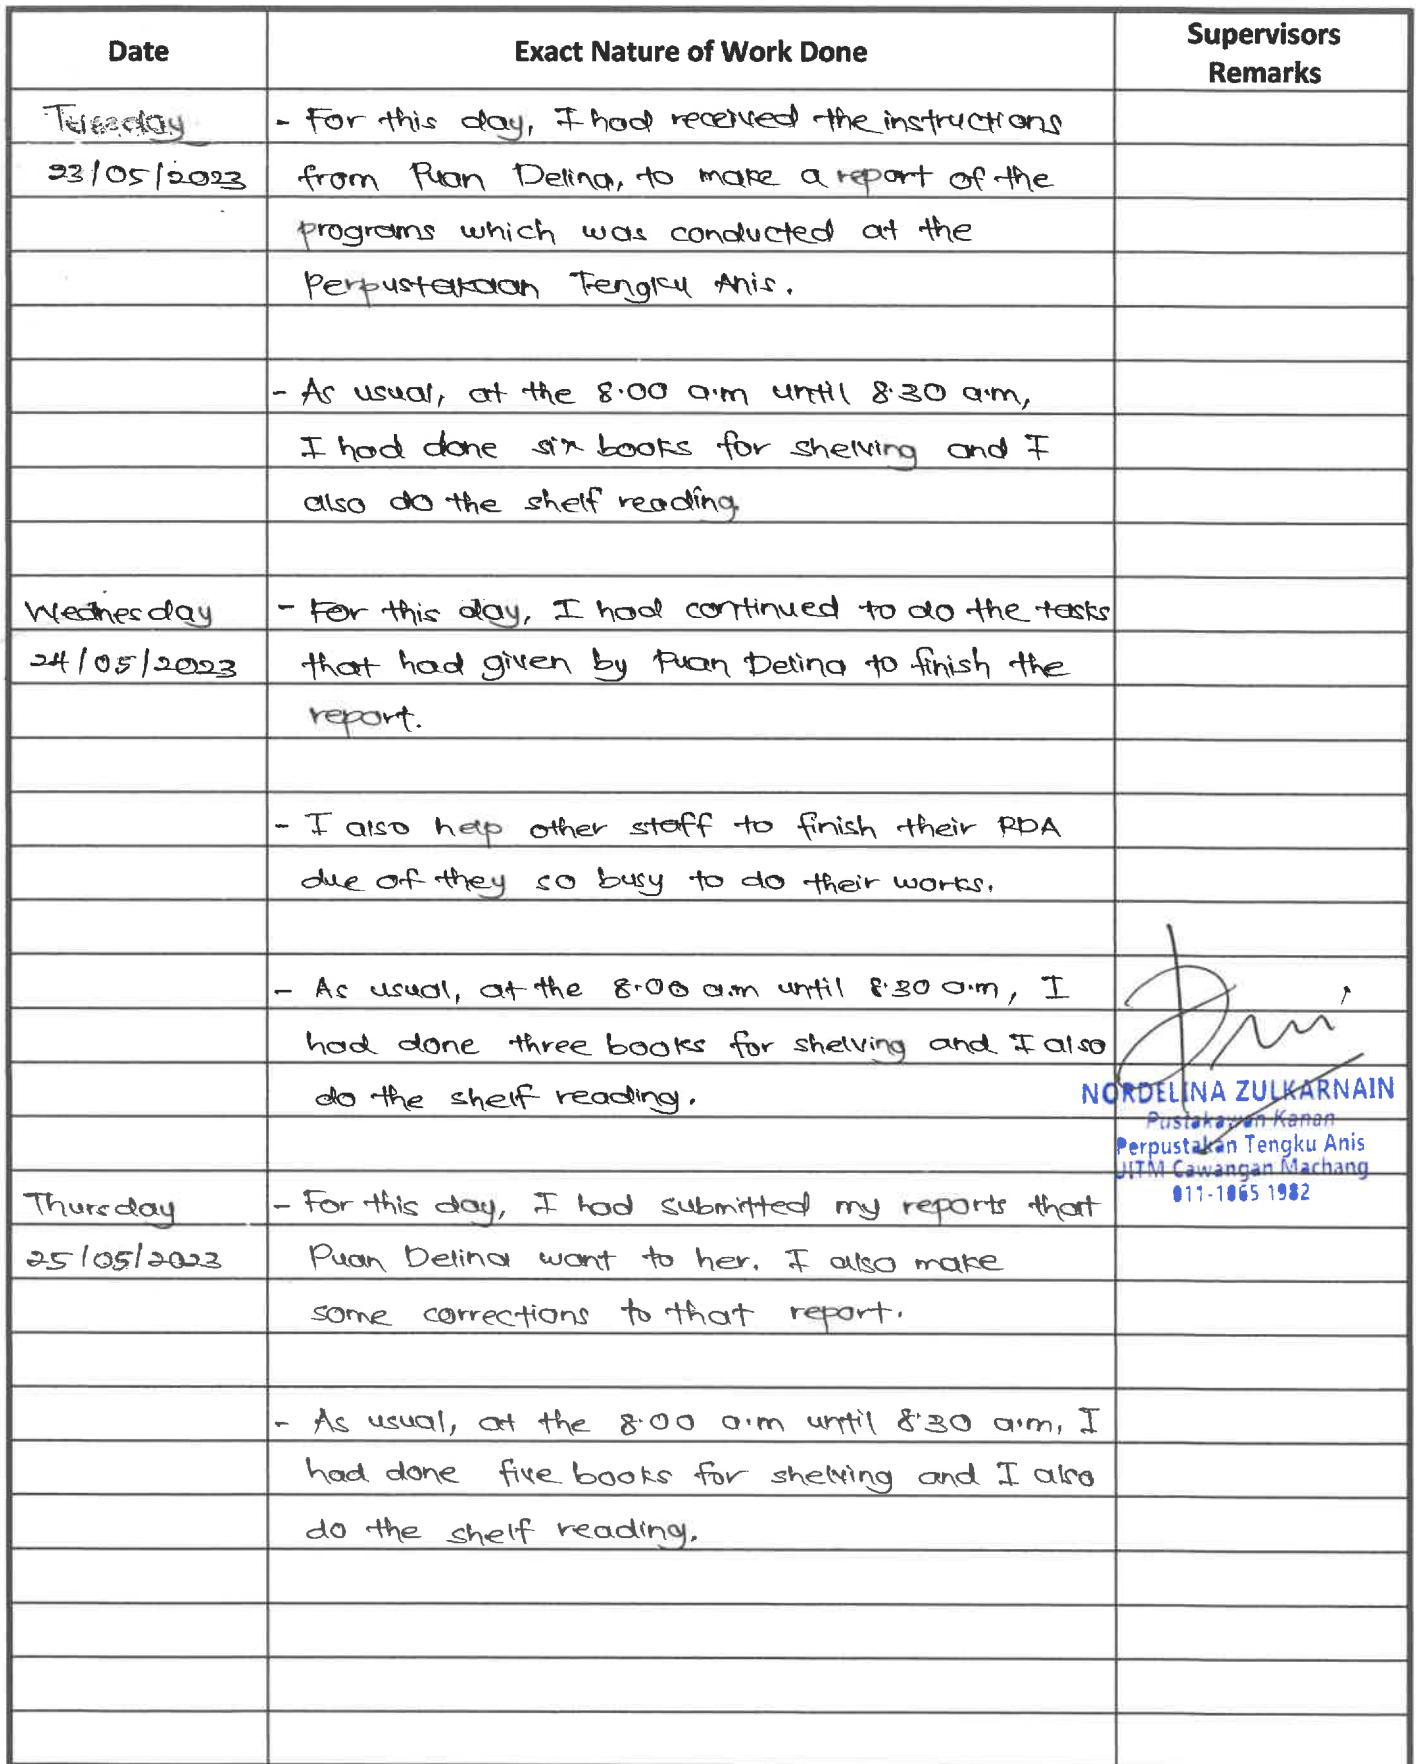 Date Exact Nature of Work Done Supervisors Remarks
Tuesday - For this day, I had received the instructions
23/05/2023 from Puan Delina, to make a report of the
programs which was conducted at the
Perpustakaan Tengku Anis.
- As usual, at the 8.00 a.m until 8.30 a.m,
I had done six books for shelving and I
also do the shelf reading.
Wednesday - For this day, I had continued to do the tasks
24/05/2023 that had given by Puan Delina to finish the
report.
- I also help other staff to finish their RDA
due of they so busy to do their works.
- As usual, at the 8.00 a.m until 8.30 a.m, I
had done three books for shelving and I also
do the shelf reading.
NORDELINA ZULKARNAIN
Pustakawan Kanan
Perpustakan Tengku Anis
UITM Cawangan Machang
011-1065 1982
Thursday - For this day, I had submitted my reports that
25/05/2023 Puan Delina want to her. I also make
some corrections to that report.
- As usual, at the 8.00 a.m until 8.30 a.m, I
had done five books for shelving and I also
do the shelf reading.